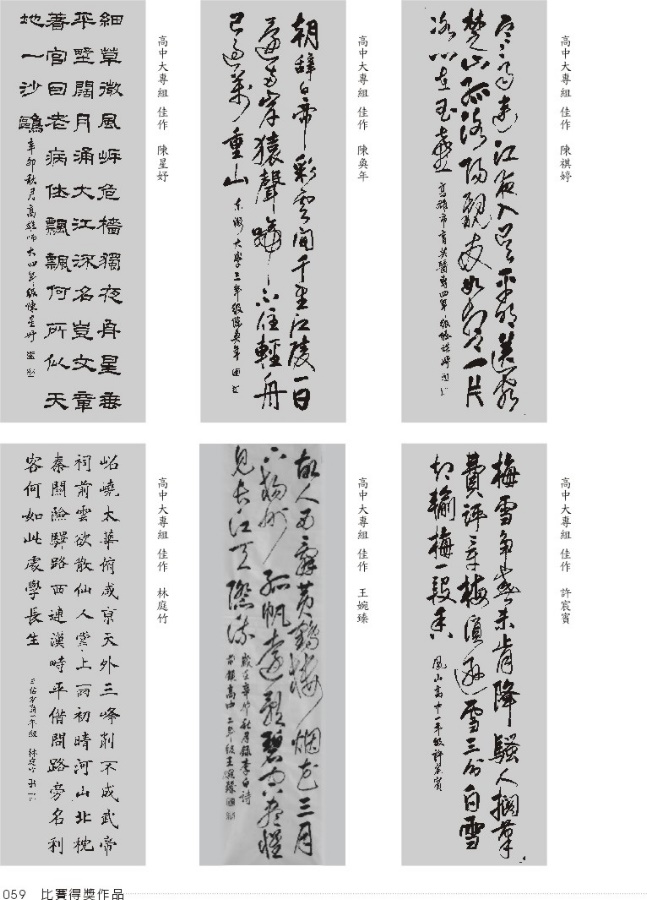 高中大專組 佳作 陳祺婷
寒雨連江夜入吳平明送客
楚山孤洛陽親友如相問一片
冰心在玉壺
高雄市育英醫專四年級陳祺婷
高中大專組 佳作 陳奐年
朝辭白帝彩雲間千里江陵一日
還兩岸猿聲啼不住輕舟
已過萬重山
大學三年級陳奐年
高中大專組 佳作 陳星妤
細草微風岸危檣獨夜舟星垂
平墅闊月涌大江流名豈文章
著官因老病休飄飄何所似天
地一沙鷗
辛卯秋月高雄師大四年級陳星妤
高中大專組 佳作 許宸賓
梅雪爭春未肯降騷人擱筆
費評章梅須遜雪三分白雪
却輸梅一段香
鳳山高中一年級許宸賓
高中大專組 佳作 王婉臻
故人西辭黃鶴樓烟花三月
下揚州孤帆遠影碧空盡惟
見長江天際流
歲在辛卯秋月錄李白詩
前鎮高中二年級王婉臻
高中大專組 佳作 林庭竹
岧嶢太華俯咸京天外三峰削不成武帝
祠前雲欲散仙人掌上雨初晴河山北枕
秦關險驛路西連漢畤平借問路旁名利
客何如此處學長生
一年級 林庭竹
059 比賽得獎作品